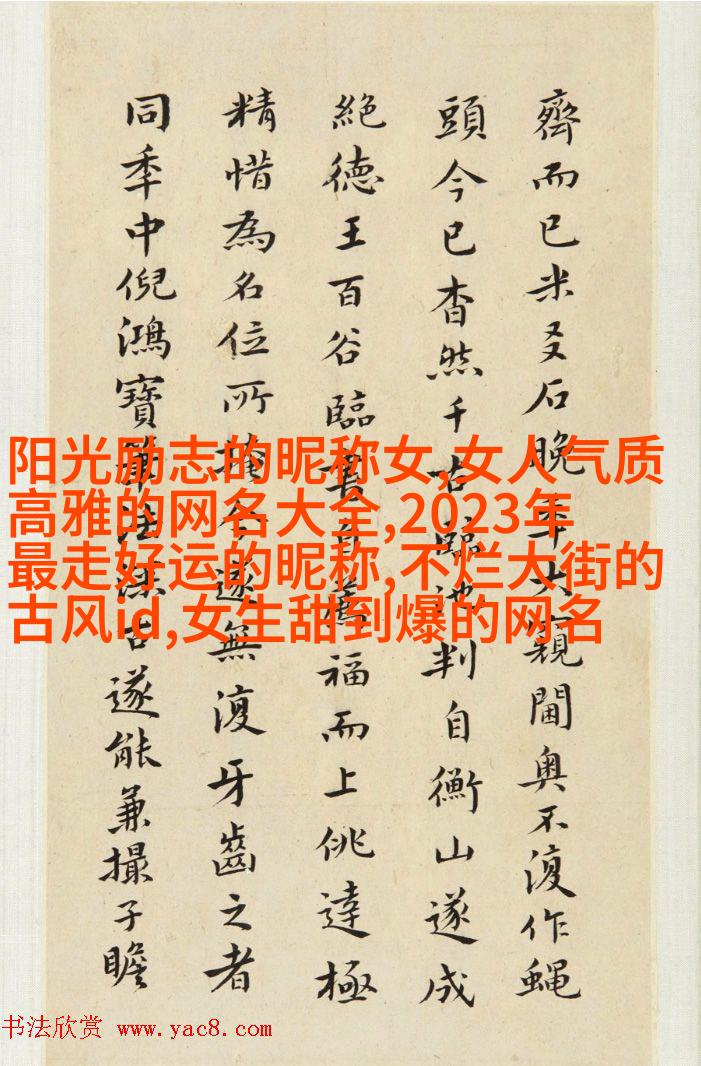 齊而已米友石晚年大窺閫奧不復作蠅
頭今已杳然千古臨池判自衡山遂成
絕德王百谷臨書自薦福而上佻達極
精惜為名位所掩今遂無復牙齒之者
同年中倪鴻寶筆法深古遂能兼撮子瞻
阳光励志的昵称女,女人气质
高雅的网名大全,2023年
最走好运的昵称,不烂大街的
古风id,女生甜到爆的网名
书法欣赏 www.yac8.com